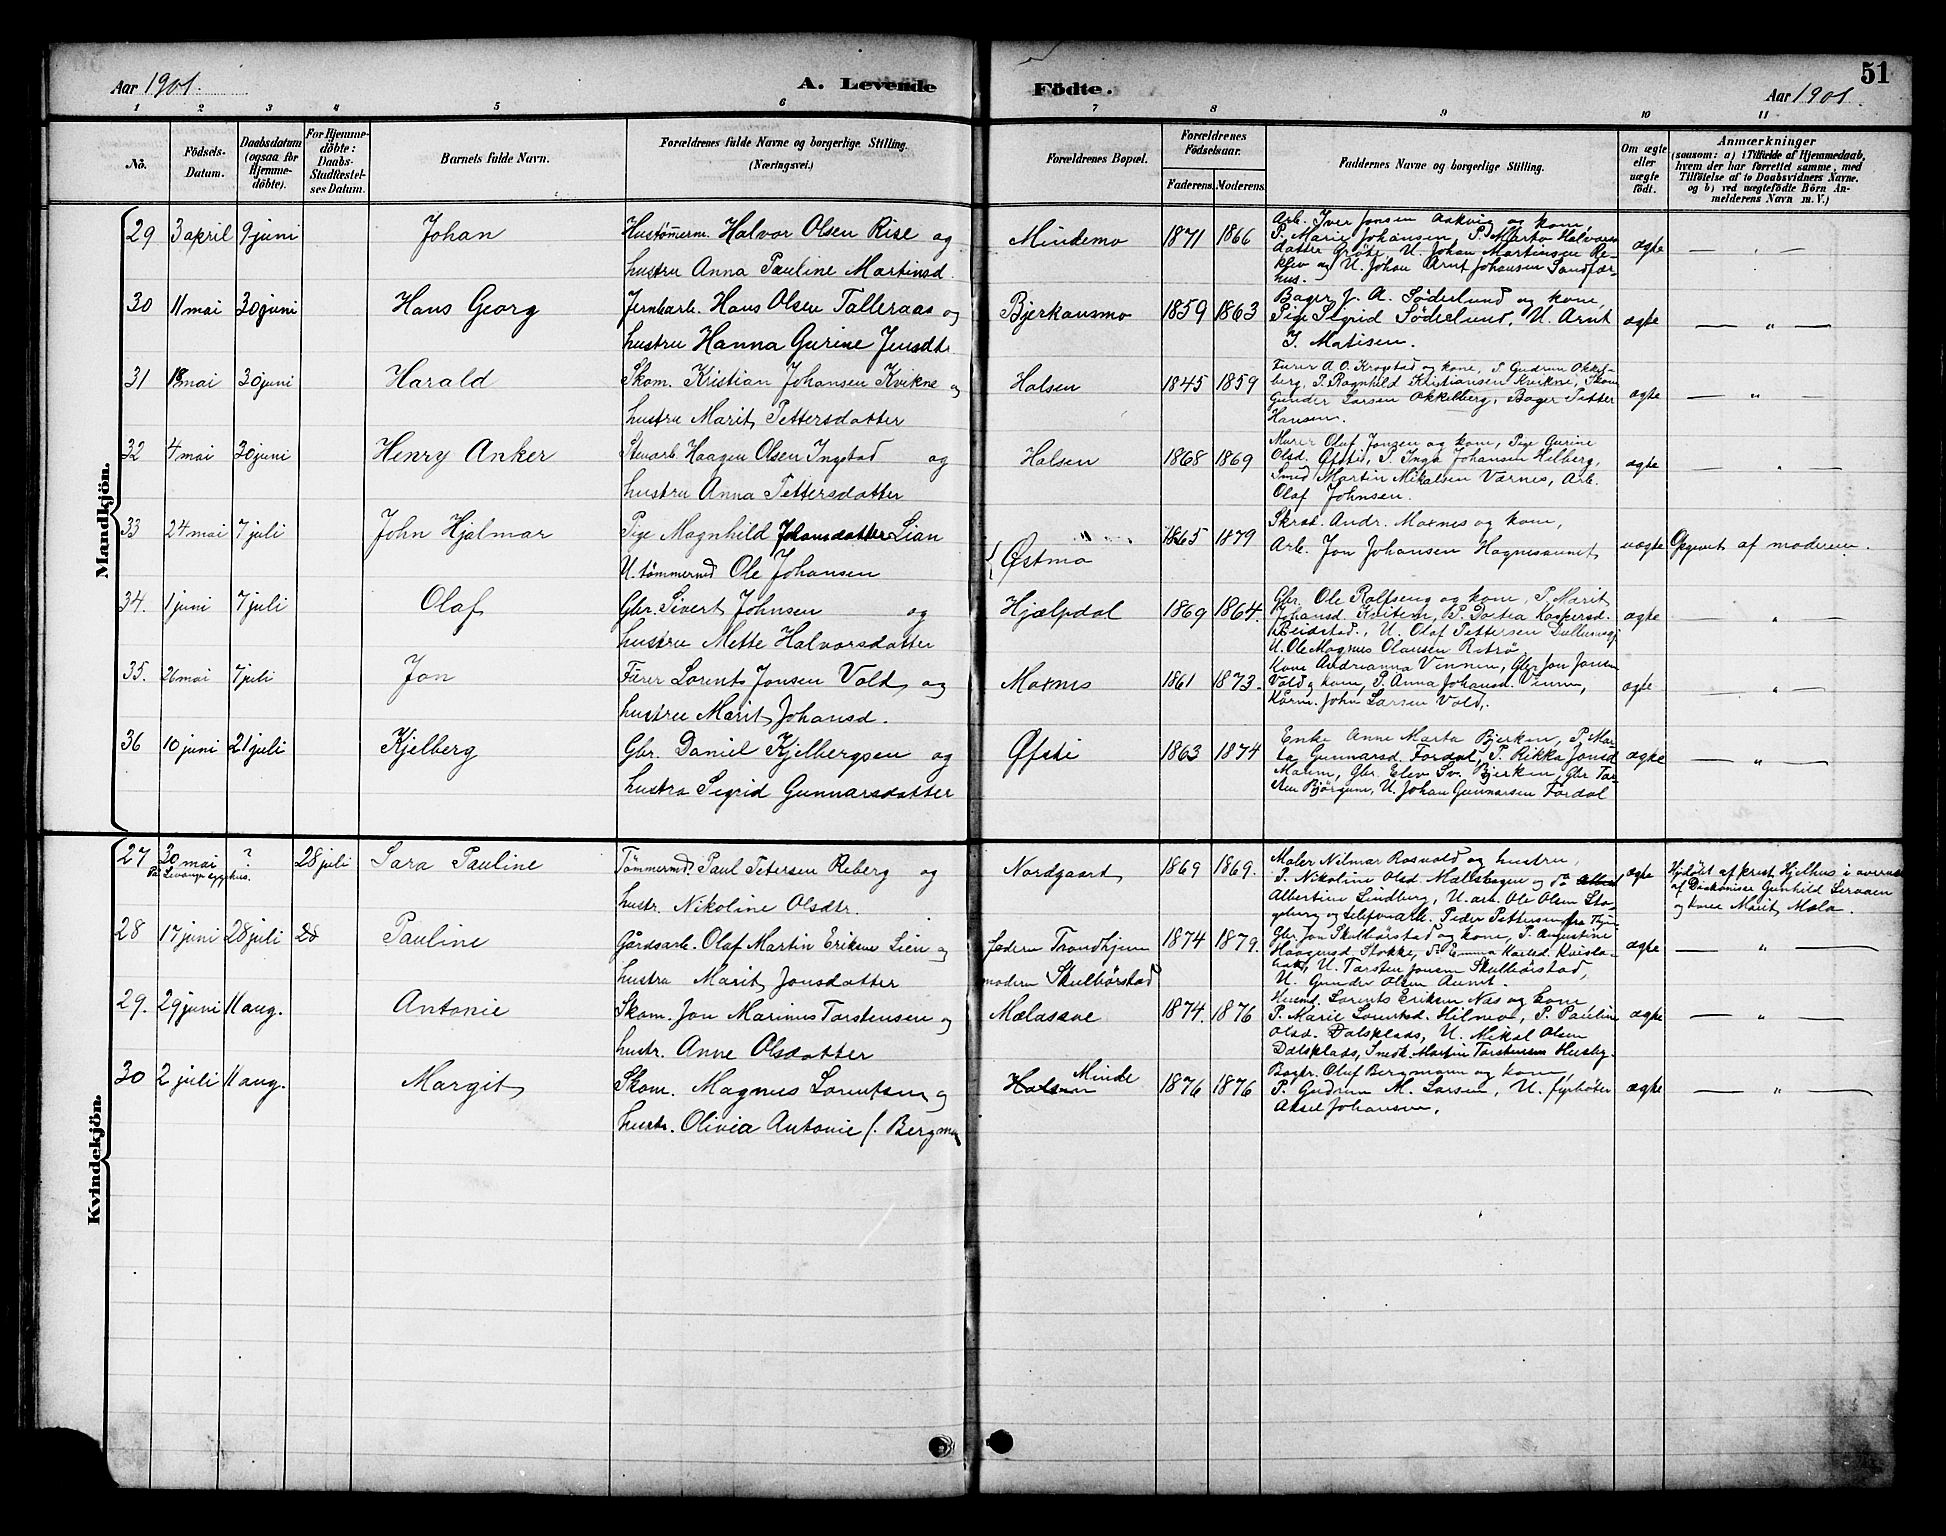 51
Aar 1901. A. Levende Födte. Aar 1901.
1 2 3 4 5 6 7 8 9 10 11
No. Födsels-Datum. Daabsdatum (ogsaa for Hjemmedöbte). For Hjemmedöbte: Daabs-Stadfæstelses Datum. Barnets fulde Navn. Forældrenes fulde Navne og borgerlige Stilling. (Næringsvei.) Forældrenes Bopæl. Forældrenes Födselsaar. Faderens. Moderens. Faddernes Navne og borgerlige Stilling. Om ægte eller uægte født. Anmærkninger (saasom: a) i Tilfælde af Hjemmedaab, hvem der har forrettet samme, med Tilföielse af to Daabsvidners Navne. og b) ved uægtefödte Börn Anmelderens Navn m. V.)
Mandkjön.
29 3 april 9 juni Johan Hustömerm. Halvor Olsen Rise og Mindemo 1871 1866 Arb. Iver Jonsen Aakvig og kone, ægte — " —
hustru Anna Pauline Martinsd. P. Marie Johansen P. Marta Halvors
datter Gröte, U. Johan Martinsen Re-
klev og U. Johan Arnt Johansen Sandfær
hus.
30 11 mai 30 juni Hans Georg Jernbarb. Hans Olsen Talleraas og Bjerkansmo 1859 1863 Bager J. A. Söderlund og kone, ægte — " —
hustru Hanna Gurine Jensdtr. Pige Sigrid Söderlund, U. Arnt
J. Matisen.
31 18 mai 30 juni Harald Skom. Kristian Johansen Kvikne og Halsen 1845 1859 Furer A. O. Krogstad og kone, P. Gudrun Okkel- ægte — " —
hustru Marit Pettersdatter berg, P. Ragnhild Kristiansen Kvikne, Skom
Gunder Larsen Okkelberg, Bager Petter
Hansen.
32 4 mai 30 juni Henry Anker Stenarb. Haagen Olsen Ingstad og Halsen 1868 1869 Murer Oluf Jonsen og kone, Pige Gurine ægte — " —
hustru Anna Pettersdatter Olsd. Øfsti, P. Inga Johansen Helberg,
Smed Martin Mikalsen Værnes, Arb.
Olaf Johnsen.
33 24 mai 7 juli John Hjalmar Pige Magnhild Johansdatter Lian Østmo 1865 1879 Skræd. Andr. Moxnes og kone, uægte Opgivet af moderen.
U. tömmermd Ole Johansen Arb. Jon Johansen Hognesaunet
34. 1 juni 7 juli Olaf Gbr. Sivert Johnsen og Hjælpdal 1869 1864. Gbr. Ole Rolfseng og kone, P. Marit ægte — " —
hustru Mette Halvorsdatter Johansd. Kvitem, P. Dortea Kaspersd.
Beidstad., U. Olaf Pettersen
U. Ole Magnus Olausen Reitrö
35. 26 mai 7 juli Jon Furer Lorents Jonsen Vold og Moxnes 1861 1873. Kone Andrianna Vinnen, Gbr Jon Jonsen ægte — " —
hustru Marit Johansd. Vold og kone, P. Anna Johansd. Vinnen,
Kaarm. John Larsen Vold.
36 10 juni 21 juli Kjelberg Gbr. Daniel Kjelbergsen og Øfsti 1863 1874 Enke Anne Marta Bjerken, P. Mar- ægte — " —
hustru Sigrid Gunnarsdatter ta Gunnarsd. Fordal, P. Rikka Jonsd
Malem, Gbr. Elev Sv. Bjerken, Gbr Tor-
Björgum, U. Johan Gunnarsen Fordal
Kvindekjön.
27 30 mai ? 28 juli Sara Pauline Tömmermd. Paul Petersen Reberg og Nordgaard 1869 1869. Maler Nilmar Rosvold og hustru, ægte Hjdöbt af Hjelhus i overvær
Paa Levanger sygehus. hustr. Nikoline Olsdtr. P. Nikoline Olsd. Mælshagen og af Diakonisse Gunhild
Albertine Lindberg, U. arb. Ole Olsen Sto- og kone Marit Mæla.
geberg og telefonarb. Peder Pettersen fra
28 17 juni 28 juli 28 Pauline Gårdsarb. Olaf Martin Eriksen Lien og faderen Trondhjem 1874 1879. Gbr Jon Skulbörstad og kone, P. Augustine ægte — " —
hustru Marit Jonsdatter moderen Skulbörstad Haagensd. Stokke, P. Emma Karlsd. Kvisla-
U. Torsten Jonsen Skulbörstad,
U. Gunder Olsen Aunet.
29. 29 juni 11 aug. Antonie Skom. Jon Marinus Torstensen og Mælasaue 1874. 1876 Husmd. Lorents Eriksen Næs og kone ægte — " —
hustr. Anne Olsdatter P. Marie Lorentsd. Hilmo, P. Pauline
Olsd. Dalsplads, U. Mikal Olsen
Dalsplads, Snedk. Martin Torstensen Husby.
30 2 juli 11 aug. Margit Skom. Magnus Lorentsen og Halsen Minde 1876 1876 Bagtr. Oluf Bergmann og kone ægte — " —
hustr. Olivia Antonie f. Bergman P. Gudrun M. Larsen, U. fyrböter
Aksel Johansen.